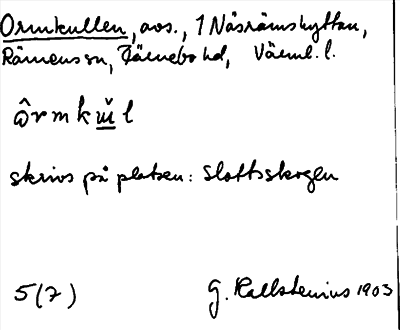 Ormkullen, avs., 1 Näsrämshyttan,
Rämens sn, Färnebo hd, Värml. l.
skrivs på platsen: Slottsskogen
5(7) G. Kallstenius 1903